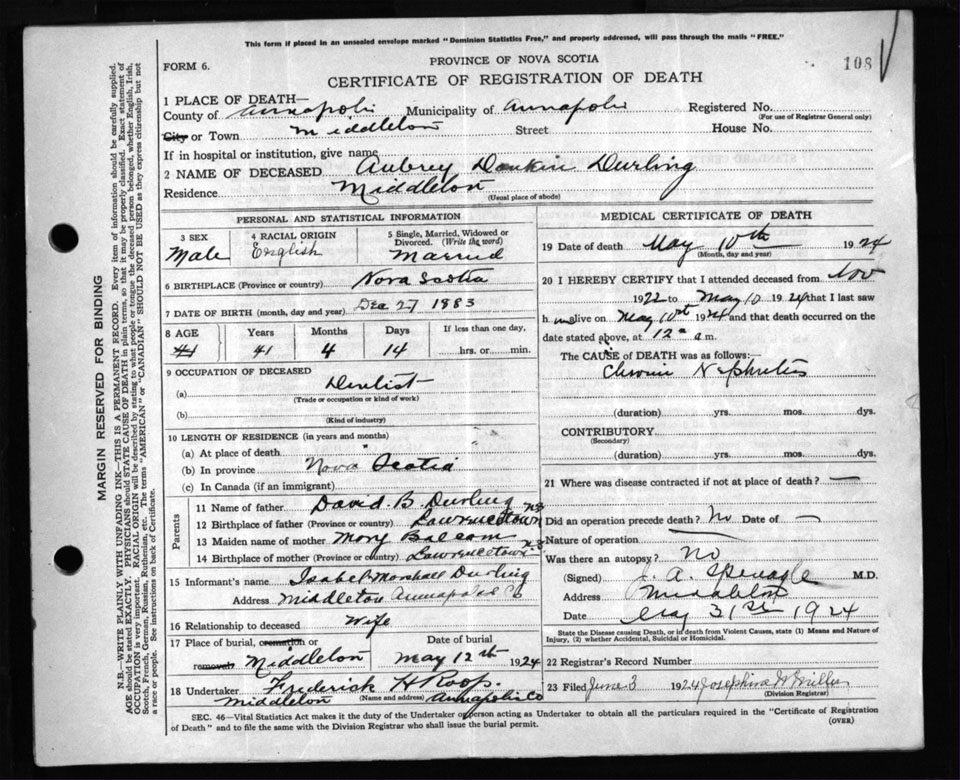 This form if placed in an unsealed envelope marked "Dominion Statistics Free," and properly addressed, will pass through the mails "FREE."
FORM 6.
PROVINCE OF NOVA SCOTIA
108
CERTIFICATE OF REGISTRATION OF DEATH
1 PLACE OF DEATH—
County of Annapolis Municipality of Annapolis Registered No.
(For use of Registrar General only)
City or Town Middleton Street House No.
If in hospital or institution, give name
2 NAME OF DECEASED Aubrey Dankin Durling
Residence Middleton
(Usual place of abode)
PERSONAL AND STATISTICAL INFORMATION
3 SEX Male
4 RACIAL ORIGIN English
5 Single, Married, Widowed or Divorced. (Write the word) Married
6 BIRTHPLACE (Province or country) Nova Scotia
7 DATE OF BIRTH (month, day and year) Dec 27 1883
8 AGE Years Months Days If less than one day,
41 41 4 14 hrs. or min.
9 OCCUPATION OF DECEASED
(a) Dentist
(Trade or occupation or kind of work)
(b)
(Kind of industry)
10 LENGTH OF RESIDENCE (in years and months)
(a) At place of death "
(b) In province Nova Scotia
(c) In Canada (if an immigrant)
Parents
11 Name of father David. B. Durling
12 Birthplace of father (Province or country) Lawrencetown NS
13 Maiden name of mother Mary Balcom
14 Birthplace of mother (Province or country) Lawrencetown NS
15 Informant's name Isabel Marshall Durling
Address Middleton Annapolis Co
16 Relationship to deceased Wife
17 Place of burial, cremation or removal Middleton
Date of burial May 12th 1924
18 Undertaker Frederick H Roop
(Name and address)
Middleton Annapolis Co
MEDICAL CERTIFICATE OF DEATH
19 Date of death May 10th 1924
(Month, day and year)
20 I HEREBY CERTIFY that I attended deceased from Nov
1922 to May 10 1924 that I last saw
h im alive on May 10th 1924 and that death occurred on the
date stated above, at 12 a m.
The CAUSE of DEATH was as follows:
Chronic Nephritis
(duration) yrs. mos. dys.
CONTRIBUTORY
(Secondary)
(duration) yrs. mos. dys.
21 Where was disease contracted if not at place of death? —
Did an operation precede death? No Date of —
Nature of operation
Was there an autopsy? No
(Signed) J. A. Sponagle M.D.
Address Middleton
Date May 31st 1924
State the Disease causing Death, or in death from Violent Causes, state (1) Means and Nature of Injury, (2) whether Accidental, Suicidal or Homicidal.
22 Registrar's Record Number
23 Filed June 3 1924 Josephine
(Division Registrar)
SEC. 46—Vital Statistics Act makes it the duty of the Undertaker or person acting as Undertaker to obtain all the particulars required in the "Certificate of Registration
of Death" and to file the same with the Division Registrar who shall issue the burial permit.
(OVER)
MARGIN RESERVED FOR BINDING
N.B.—WRITE PLAINLY WITH UNFADING INK—THIS IS A PERMANENT RECORD. Every item of information should be carefully supplied.
AGE should be stated EXACTLY. PHYSICIANS should STATE CAUSE OF DEATH in plain terms, so that it may be properly classified. Exact statement of
OCCUPATION is very important. RACIAL ORIGIN will be described by stating to what people or tongue the deceased person belonged, whether English, Irish,
Scotch, French, German, Russian, Ruthenian, etc. The terms "AMERICAN" or "CANADIAN" SHOULD NOT BE USED as they express citizenship but not
a race or people. See instructions on back of Certificate.